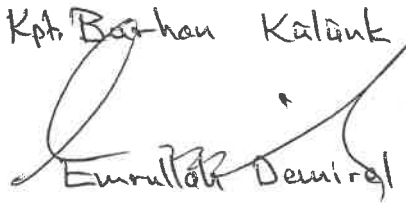 Kpt. Barhan Külünk
Emrullah Demirel